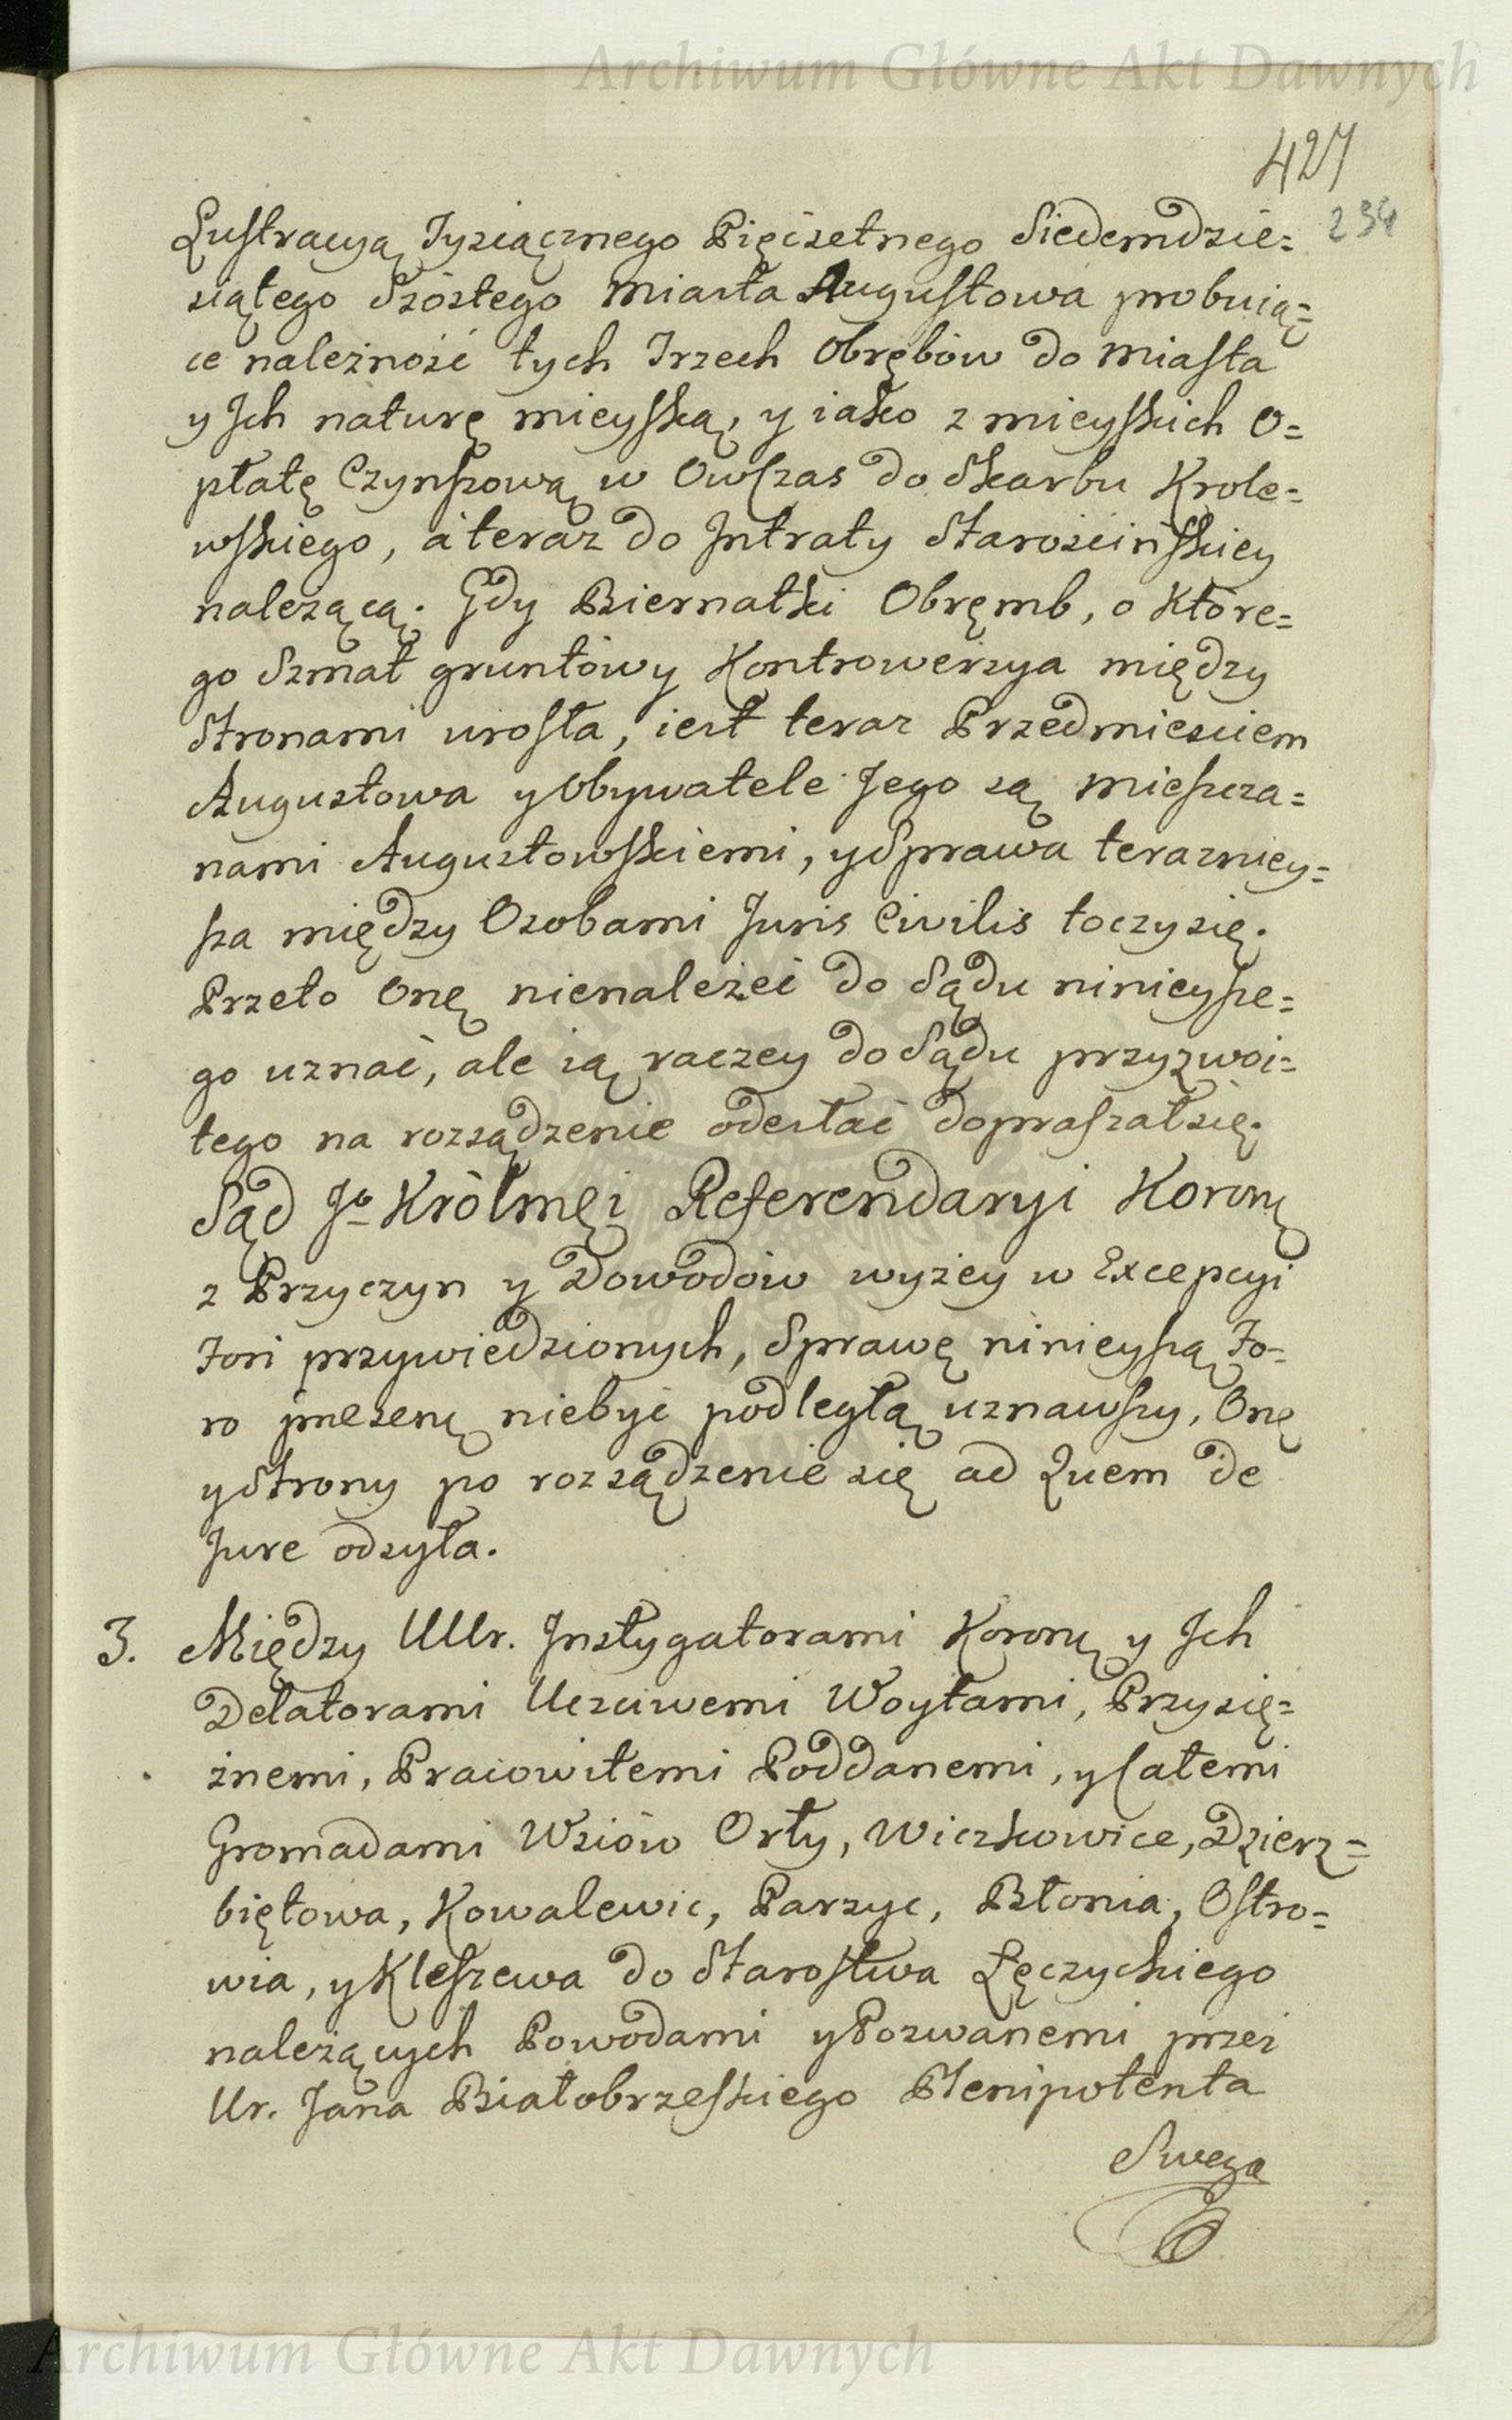 Archiwum Główne Akt Dawnych
427
234
Lustracyą Tysiącznego Pięćsetnego Siedemdzie=
siątego Szóstego Miasta Augustowa probuią=
ce należność tych Trzech Obrębów do Miasta
y Ich naturę mieyską, y iako z mieyskich O=
płatę Czynszową w Owszas do Skarbu Krole=
wskiego, á teraz do Intraty Starościńskiey
należącą. Gdy Biernatki Obręmb, o Które=
go Szmat gruntowy Kontrowersya między
Stronami urosła, iest teraz Przedmieściem
Augustowa y Obywatele Jego są Mieszcza=
nami Augustowskiemi, y Sprawa teraźniey=
sza między Osobami Juris Civilis toczy się.
Przeto Onę nienależeć do Sądu ninieysze=
go uznać, ale ią raczey do Sądu przyzwoi=
tego na rozsądzenie odesłać dopraszał się.
Sąd Jo Królmći Referendaryi Koronę
z Przyczyn y Dowodów wyżey w Excepcyi
Fori przywiedzionych, Sprawę ninieyszą Fo=
ro niebyć podległą uznawszy, Onę
y Strony po rozsądzenie się ad Quem de
Jure odsyła.
3. Między UUr. Instygatorami Koronę y Ich
Delatorami Uczciwemi Woytami, Przysię=
żnemi, Pracowitemi Poddanemi, y Całemi
Gromadami Wsiów Orły, Wiczkowice, Dzierz=
biętowa, Kowalewic, Parzyc, Błonia, Ostro=
wia, y Kleszewa do Starostwa Łęczyckiego
należących Powodami y Pozwanemi przez
Ur. Jana Białobrzeskiego Plenipotenta
Swego
Archiwum Główne Akt Dawnych